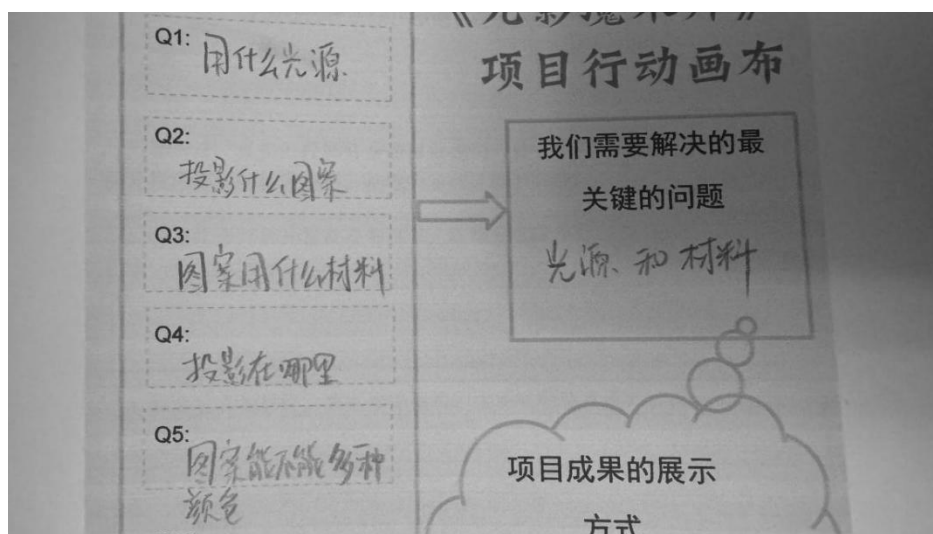 Q1:
用什么光源
Q2:
投影什么图案
Q3:
图案用什么材料
Q4:
投影在哪里
Q5:
图案能不能多种
颜色
《光影魔术师》
项目行动画布
我们需要解决的最
关键的问题
光源、和材料
项目成果的展示
方式